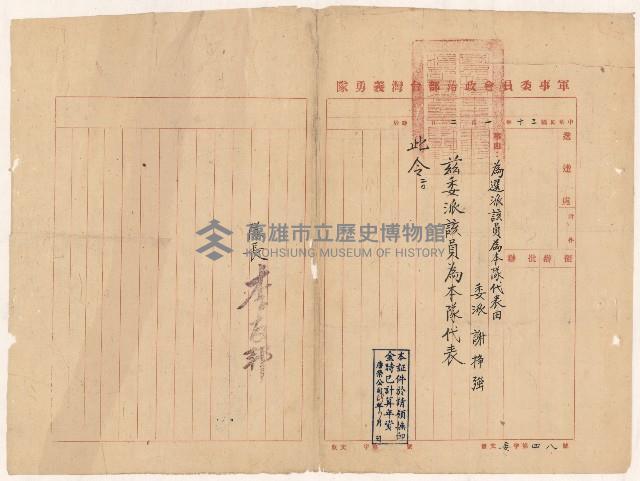 軍事委員會政治部台灣義勇隊
中華民國三十年一月二日
事由
為選派該員為本隊代表由
送達處
附件
擬辦批辦
委派 謝掙強
茲委派該員為本隊代表
此令
隊長 李友邦
本証件於請領撫卹
金時已計算年資
唐榮公司
發文 委字第四八號
收文 字第 號
高雄市立歷史博物館
KAOHSIUNG MUSEUM OF HISTORY